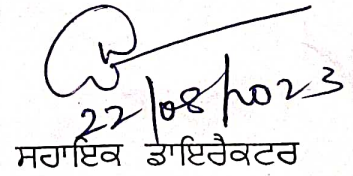 22/08/2023
ਸਹਾਇਕ ਡਾਇਰੈਕਟਰ